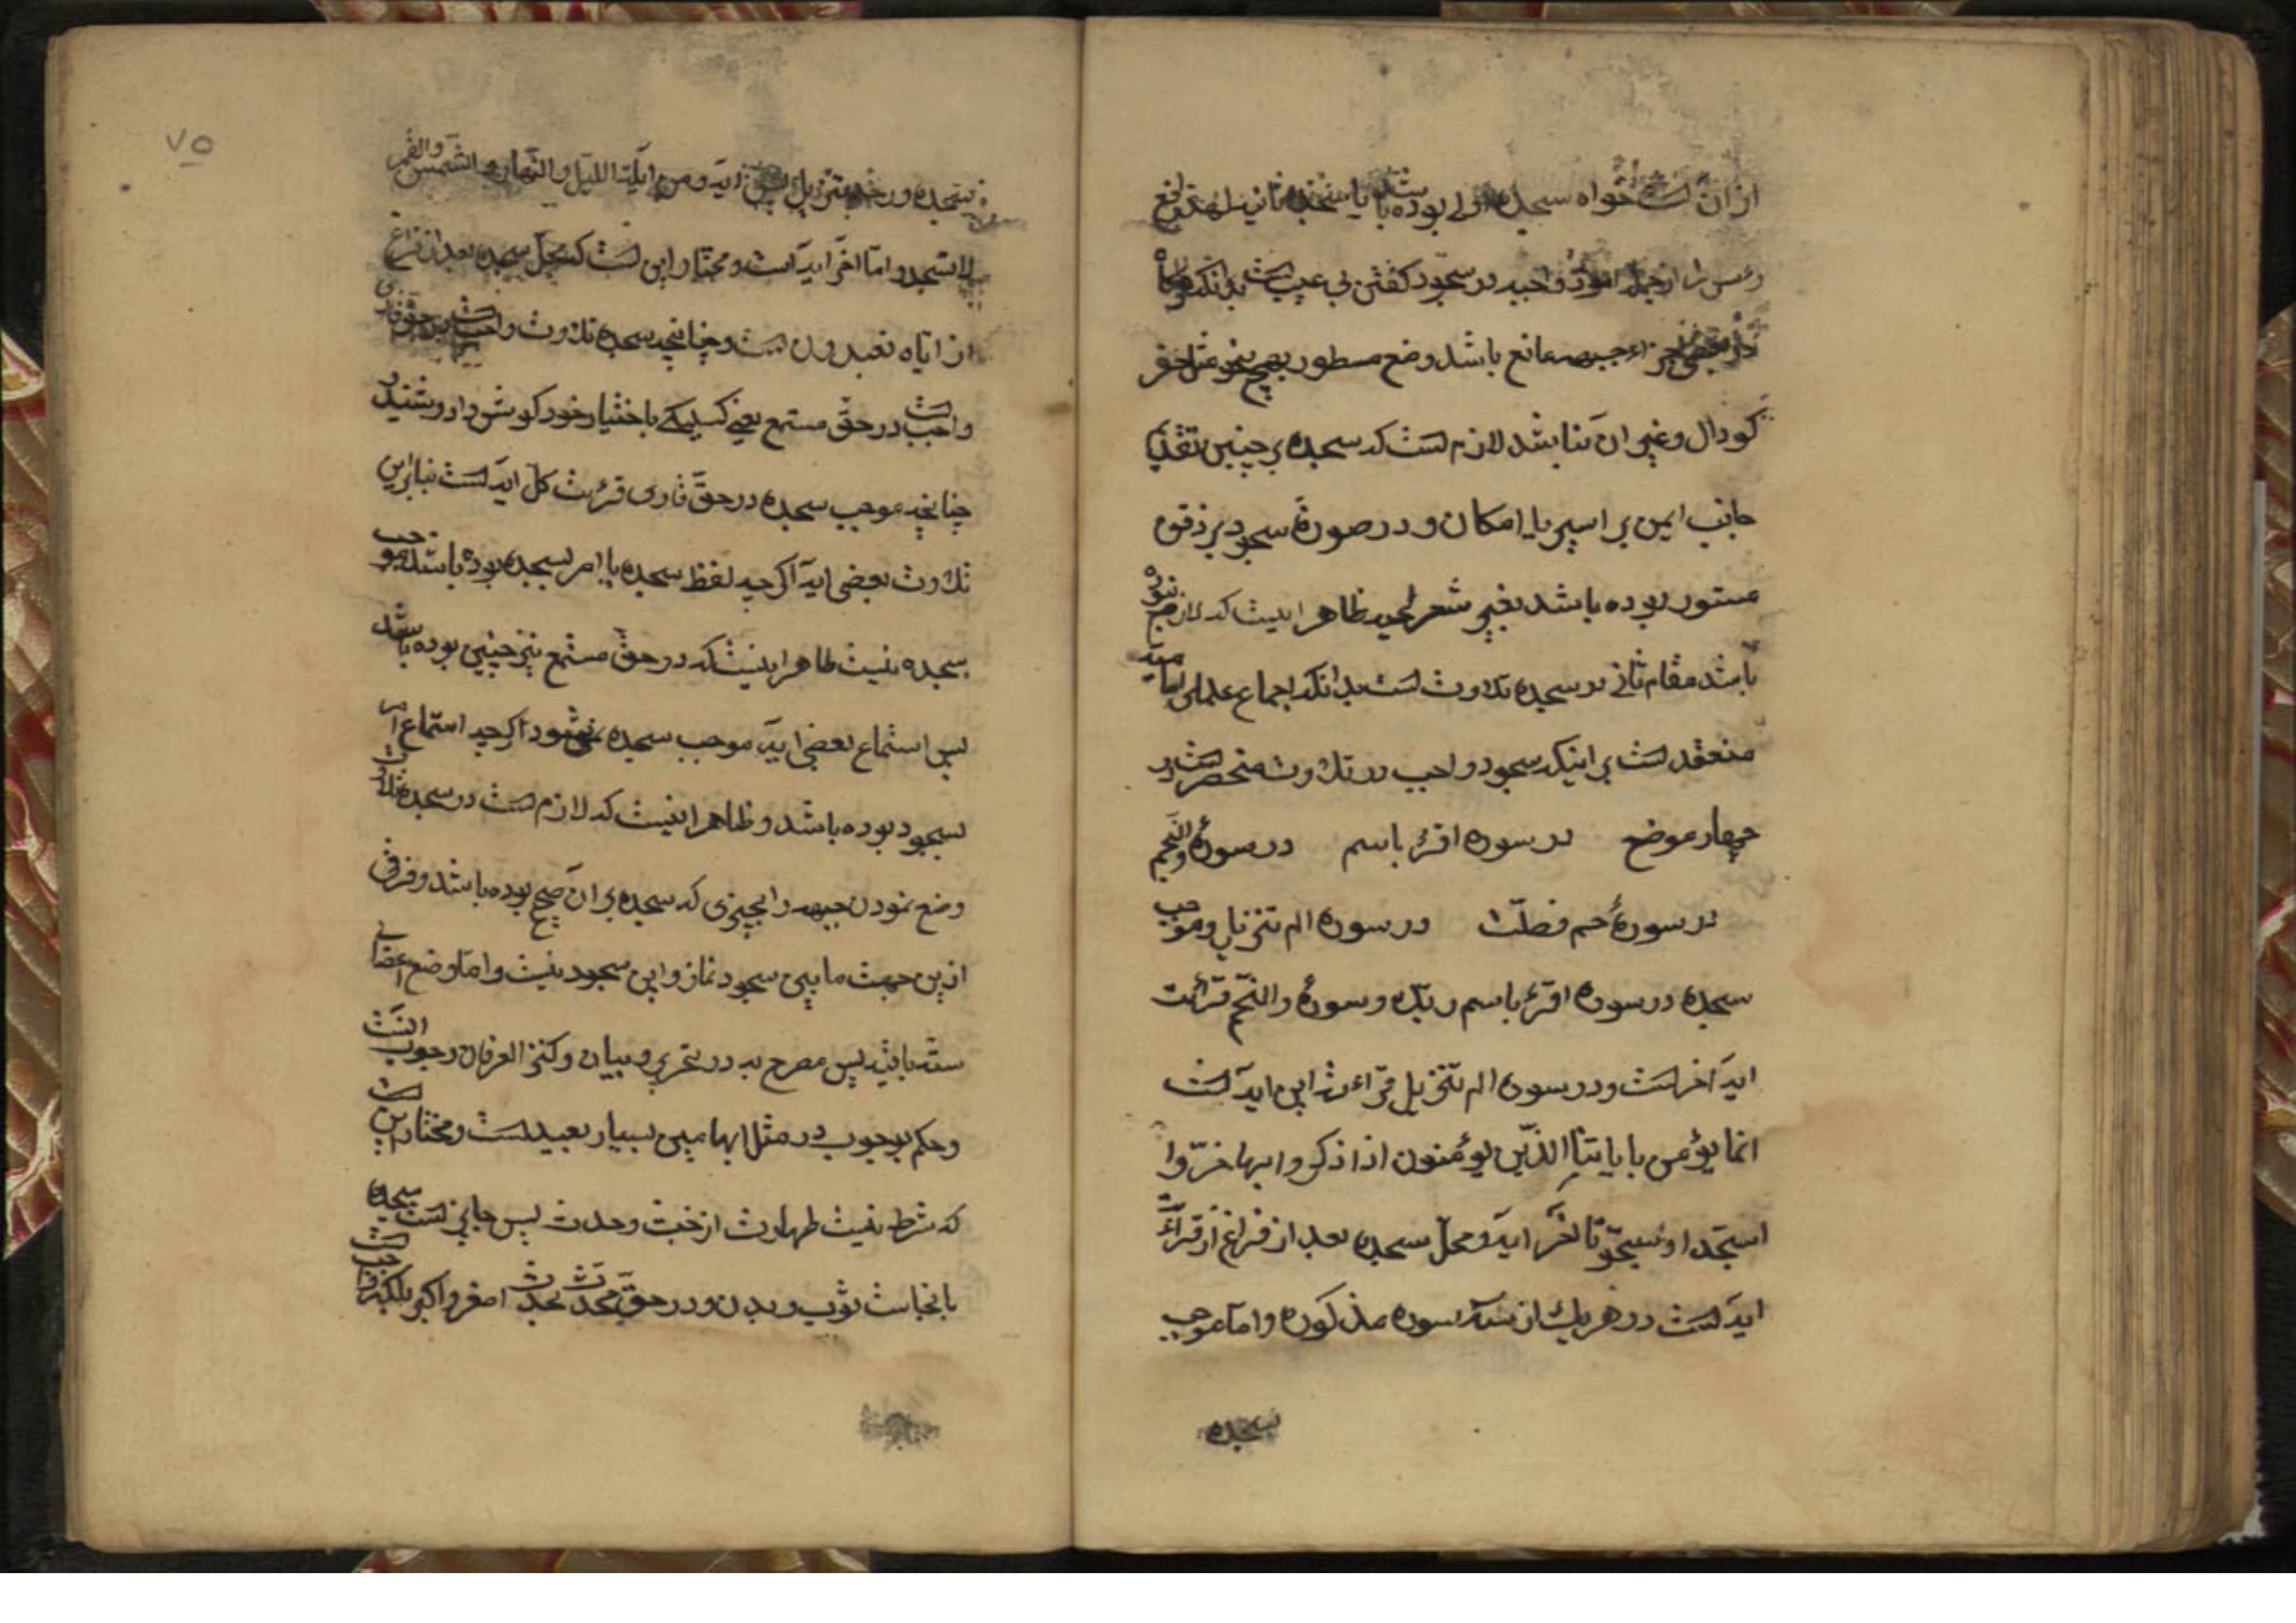 از آن است خواه سجده اولی بوده باشد یا سجده ثانیه
در سجود گفتن بی عیب است بدانکه هرگاه
جبهه مانع باشد وضع مسطور بهیچ نحو مثل حفر
کودال و غیر آن نتابشد لازم است که سجده بر جبین بتقدیم
جانب ایمن بر ایسر با امکان و در صورة سجود بر ذقن
مستور بوده باشد بغیر شعر لحیه ظاهر اینست که
باشد مقام ثانی در سجده تلاوت است بدانکه اجماع علمای امامیه
منعقد است بر اینکه سجود واجب در تلاوت منحصر است در
چهار موضع در سوره اقرء باسم در سورۀ والنجم
در سورۀ حم فصلت در سوره الم تنزیل و موجب
سجده در سوره اقرء باسم ربک و سورۀ والنجم قرائت
ایۀ آخر است و در سوره الم تنزیل قراءت این ایه است
انما یؤمن بایاتنا الذین یؤمنون اذا ذکروا بها خروا
سجدا وسبحو تا آخر ایه و محل سجده بعد از فراغ از قرائت
ایه است در هر یك از سه سوره مذکوره و اما موجب
سجده
۷۵
سجده در حم تنزیل پس ایه ومن ایاته اللیل والنهار والشمس والقمر
لا تسجدوا تا آخر ایه است و مختار این است که محل سجده بعد از فراغ
از ایاه تعبدون است و چنانچه سجده تلاوت واجب است در حق قاری
واجب است در حق مستمع یعنی کسیکه باختیار خود کوش دارد و شنید
چنانچه موجب سجده در حق قاری قرئت کل ایه است بنابراین
تلاوت بعضی ایه اکرچه لفظ سجده یا امر بسجده بوده باشد موجب
سجده نیست ظاهر اینستکه در حق مستمع نیز چنین بوده باشد
پس استماع بعضی ایه موجب سجده نمیشود اکرچه استماع امر
بسجود بوده باشد و ظاهر اینست که لازم است در سجده تلاوت
وضع نمودن جبهه را بچیزی که سجده بر آن صحیح بوده باشد و فرق
ازین جهت ما بین سجود نماز و این سجود نیست و اما وضع اعضای
ستۀ باقیه پس مصرح به در تحریر و بیان و کنز العرفان وجوب آنست
و حکم بوجوب در مثل ابهامین بسیار بعید است و مختار این است
که شرط نیست طهارت از خبث و حدث پس جایز است سجده
بانجاست ثوب و بدن و در حق محدث بحدث اصغر و اکبر بلکه واجب است